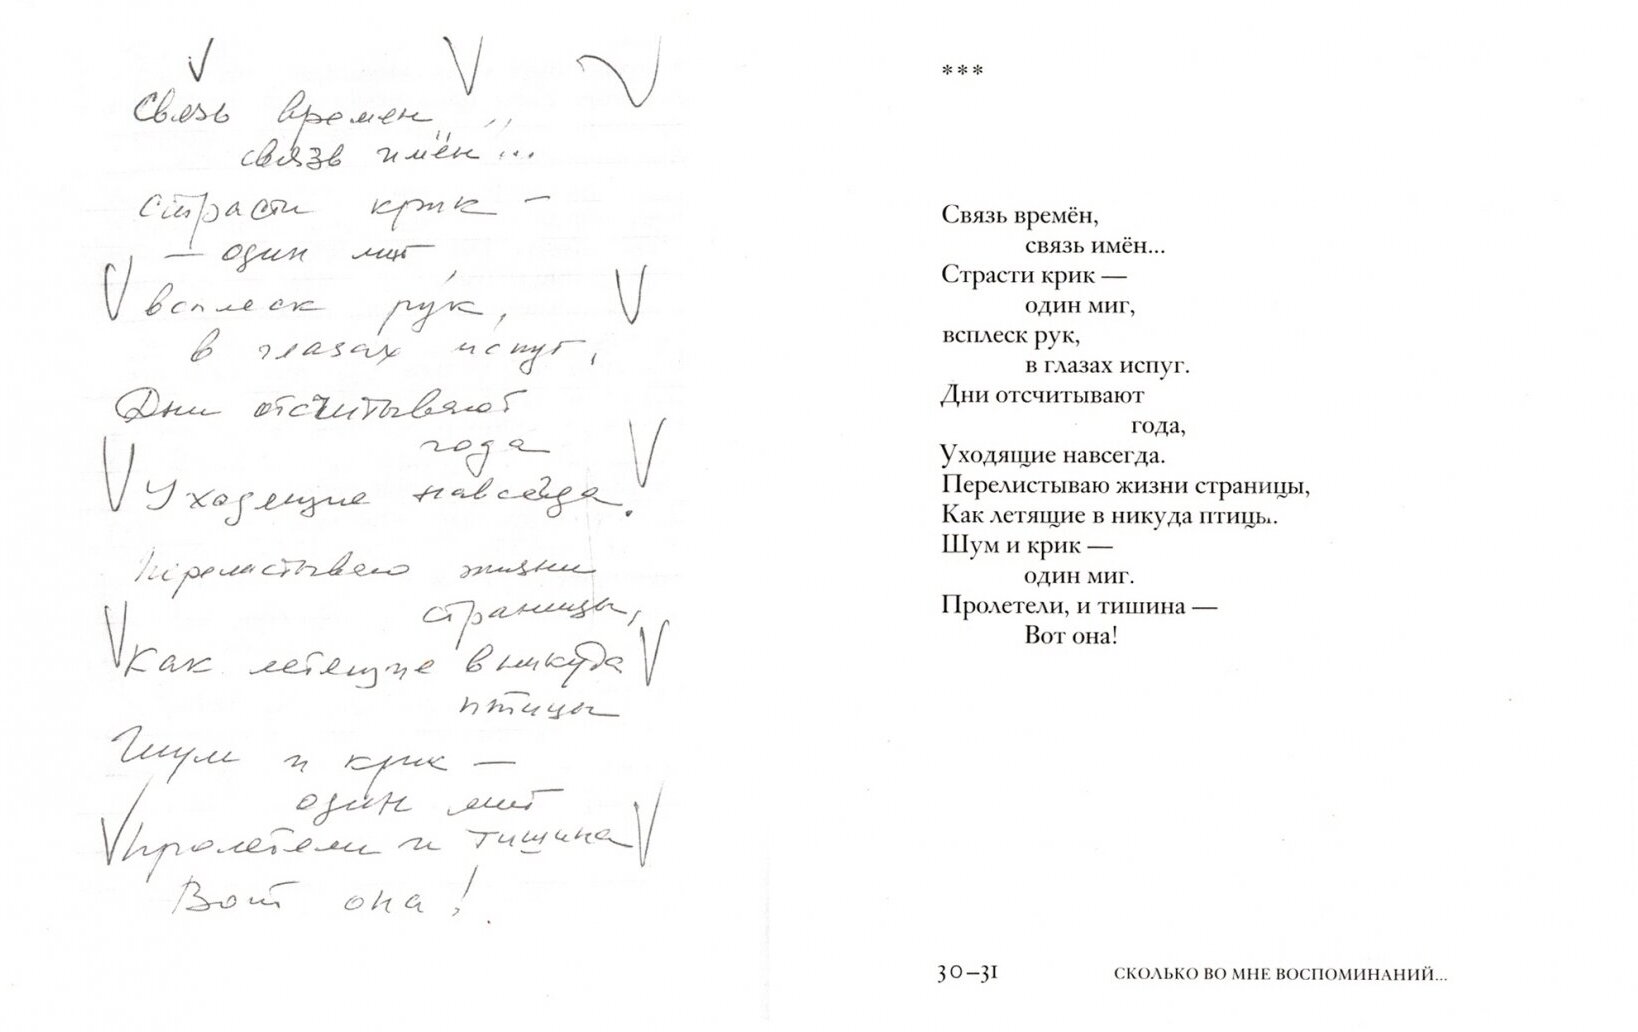 Связь времен,
связь имён...
Страсти крик –
– один миг,
всплеск рук,
в глазах испуг,
Дни отсчитывают
года
Уходящие навсегда.
Перелистываю жизни
страницы,
Как летящие в никуда
птицы
Шум и крик –
один миг
Пролетели и тишина
Вот она!
***
Связь времён,
связь имён...
Страсти крик —
один миг,
всплеск рук,
в глазах испуг.
Дни отсчитывают
года,
Уходящие навсегда.
Перелистываю жизни страницы,
Как летящие в никуда птицы.
Шум и крик —
один миг.
Пролетели, и тишина —
Вот она!
30–31 СКОЛЬКО ВО МНЕ ВОСПОМИНАНИЙ...